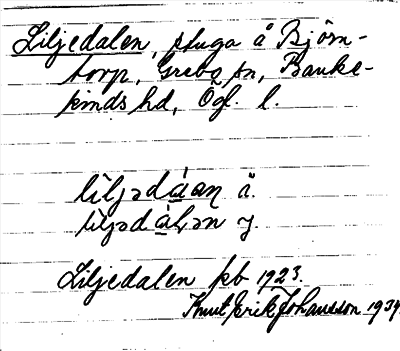 Liljedalen, stuga å Björn-
torp, Grebo sn, Banke-
kinds hd, Ögl. l.
lìljədáan ä.
lìljədálən y.
Liljedalen kb 1923.
Knut Erik Johansson 1934